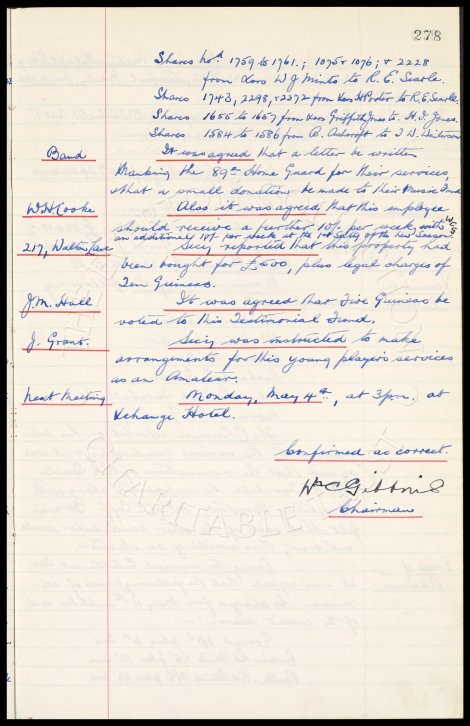 278
Shares nos 1759 to 1761.; 1075 & 1076; & 2228
from Exors W J Mints to R. E. Searle.
Shares 1743, 2298, & 2372 from Exors H Porter to R. E. Searle.
Shares 1655 to 1657 from Exors Griffith Jones to H. I. Jones.
Shares 1584 to 1586 from A. Ashcroft to J. W.
Band It was agreed that a letter be written
thanking the 89th Home Guard for their services,
& that a small donation be made to their Music Fund
W. H. Cooke Also it was agreed that this employee
should receive a further 10/- per week, with
an additional 10/- per week at the 1st of the new Season.
217, Walton Lane Secy reported that this property had
been bought for £500, plus legal charges of
Ten Guineas.
J. M. Hall It was agreed that Five Guineas be
voted to this Testimonial Fund.
J. Grant. Secy was instructed to make
arrangements for this young player's services
as an Amateur.
Next Meeting Monday, May 4th, at 3pm. at
Xchange Hotel.
Confirmed as correct.
Wm C Gibbins
Chairman
CHARITABLE